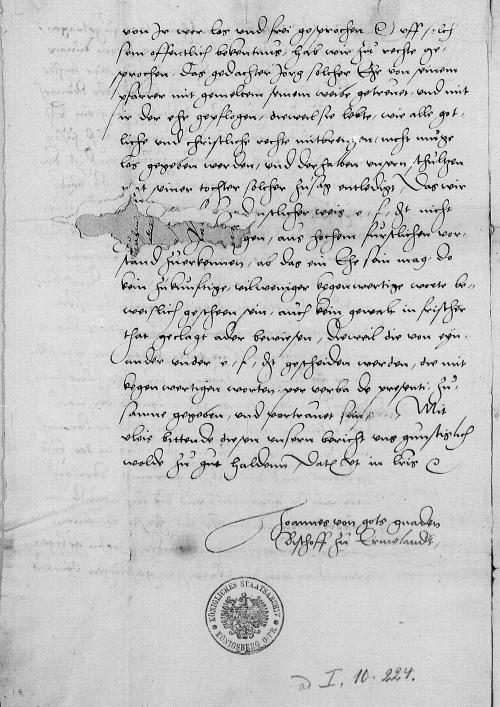 von Jr wer los und frei gesprochen Uff
sein offentlich bekentnus, hab wir zu rechte ge-
sprochen, Das gedachter Jorg solcher Ehe von seinem
pfarrer mit gemeltem seinem weibe getrewet, und mit
ir der ehe gepflogen, dieweil sie lebte, wie alle got-
liche und christliche rechte mitbrengen, nicht muge
los gegeben werden, und derhalben unsern schultzen
mit seiner tochter solcher zusag entledigt, Das wir
dinstlicher weis e. f. dt nicht
gen, aus hochem furstlichen vor-
stand zuerkennen, ab das ein Ehe sein mag, do
kein zukunftige, vilweniger kegenwortige worte be-
weislich gescheen sein, auch kein gewalt in frischer
that geclagt ader bewiesen, Dieweil die von eyn-
ander under e. f. dt gescheiden werden, die mit
kegenwertigen worten per verba de presenti zu-
samne gegeben, und vortrauet sein. Mit
vleis bittende diesen unsern bericht uns gunstiglich
wolde zu gut haldenn Datum ut in literis
Joannes von gots gnaden
Bischoff zu Ermelandt,
KÖNIGLICHES STAATSARCHIV
KÖNIGSBERG O/PR.
ad I. 10. 224.